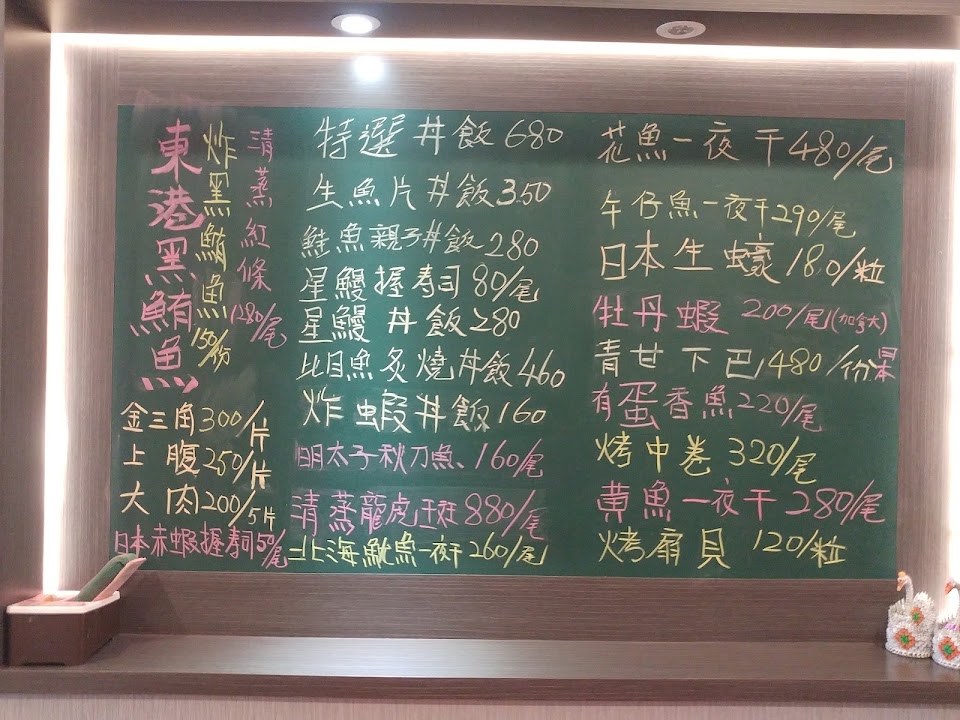 東港黑鮪魚
炸黑鮪魚150/份
清蒸紅條1280/尾
金三角300/片
上腹250/片
大肉200/5片
日本赤蝦握壽司50/尾
特選丼飯680
生魚片丼飯350
鮭魚親子丼飯280
星鰻握壽司80/尾
星鰻丼飯280
比目魚炙燒丼飯460
炸蝦丼飯160
明太子秋刀魚、160/尾
清蒸龍虎斑880/尾
北海魷魚一夜干260/尾
花魚一夜干480/尾
午仔魚一夜干290/尾
日本生蠔180/粒
牡丹蝦200/尾(加拿大)
青甘下巴480/份日本
有蛋香魚220/尾
烤中卷320/尾
黄魚一夜干280/尾
烤扇貝120/粒